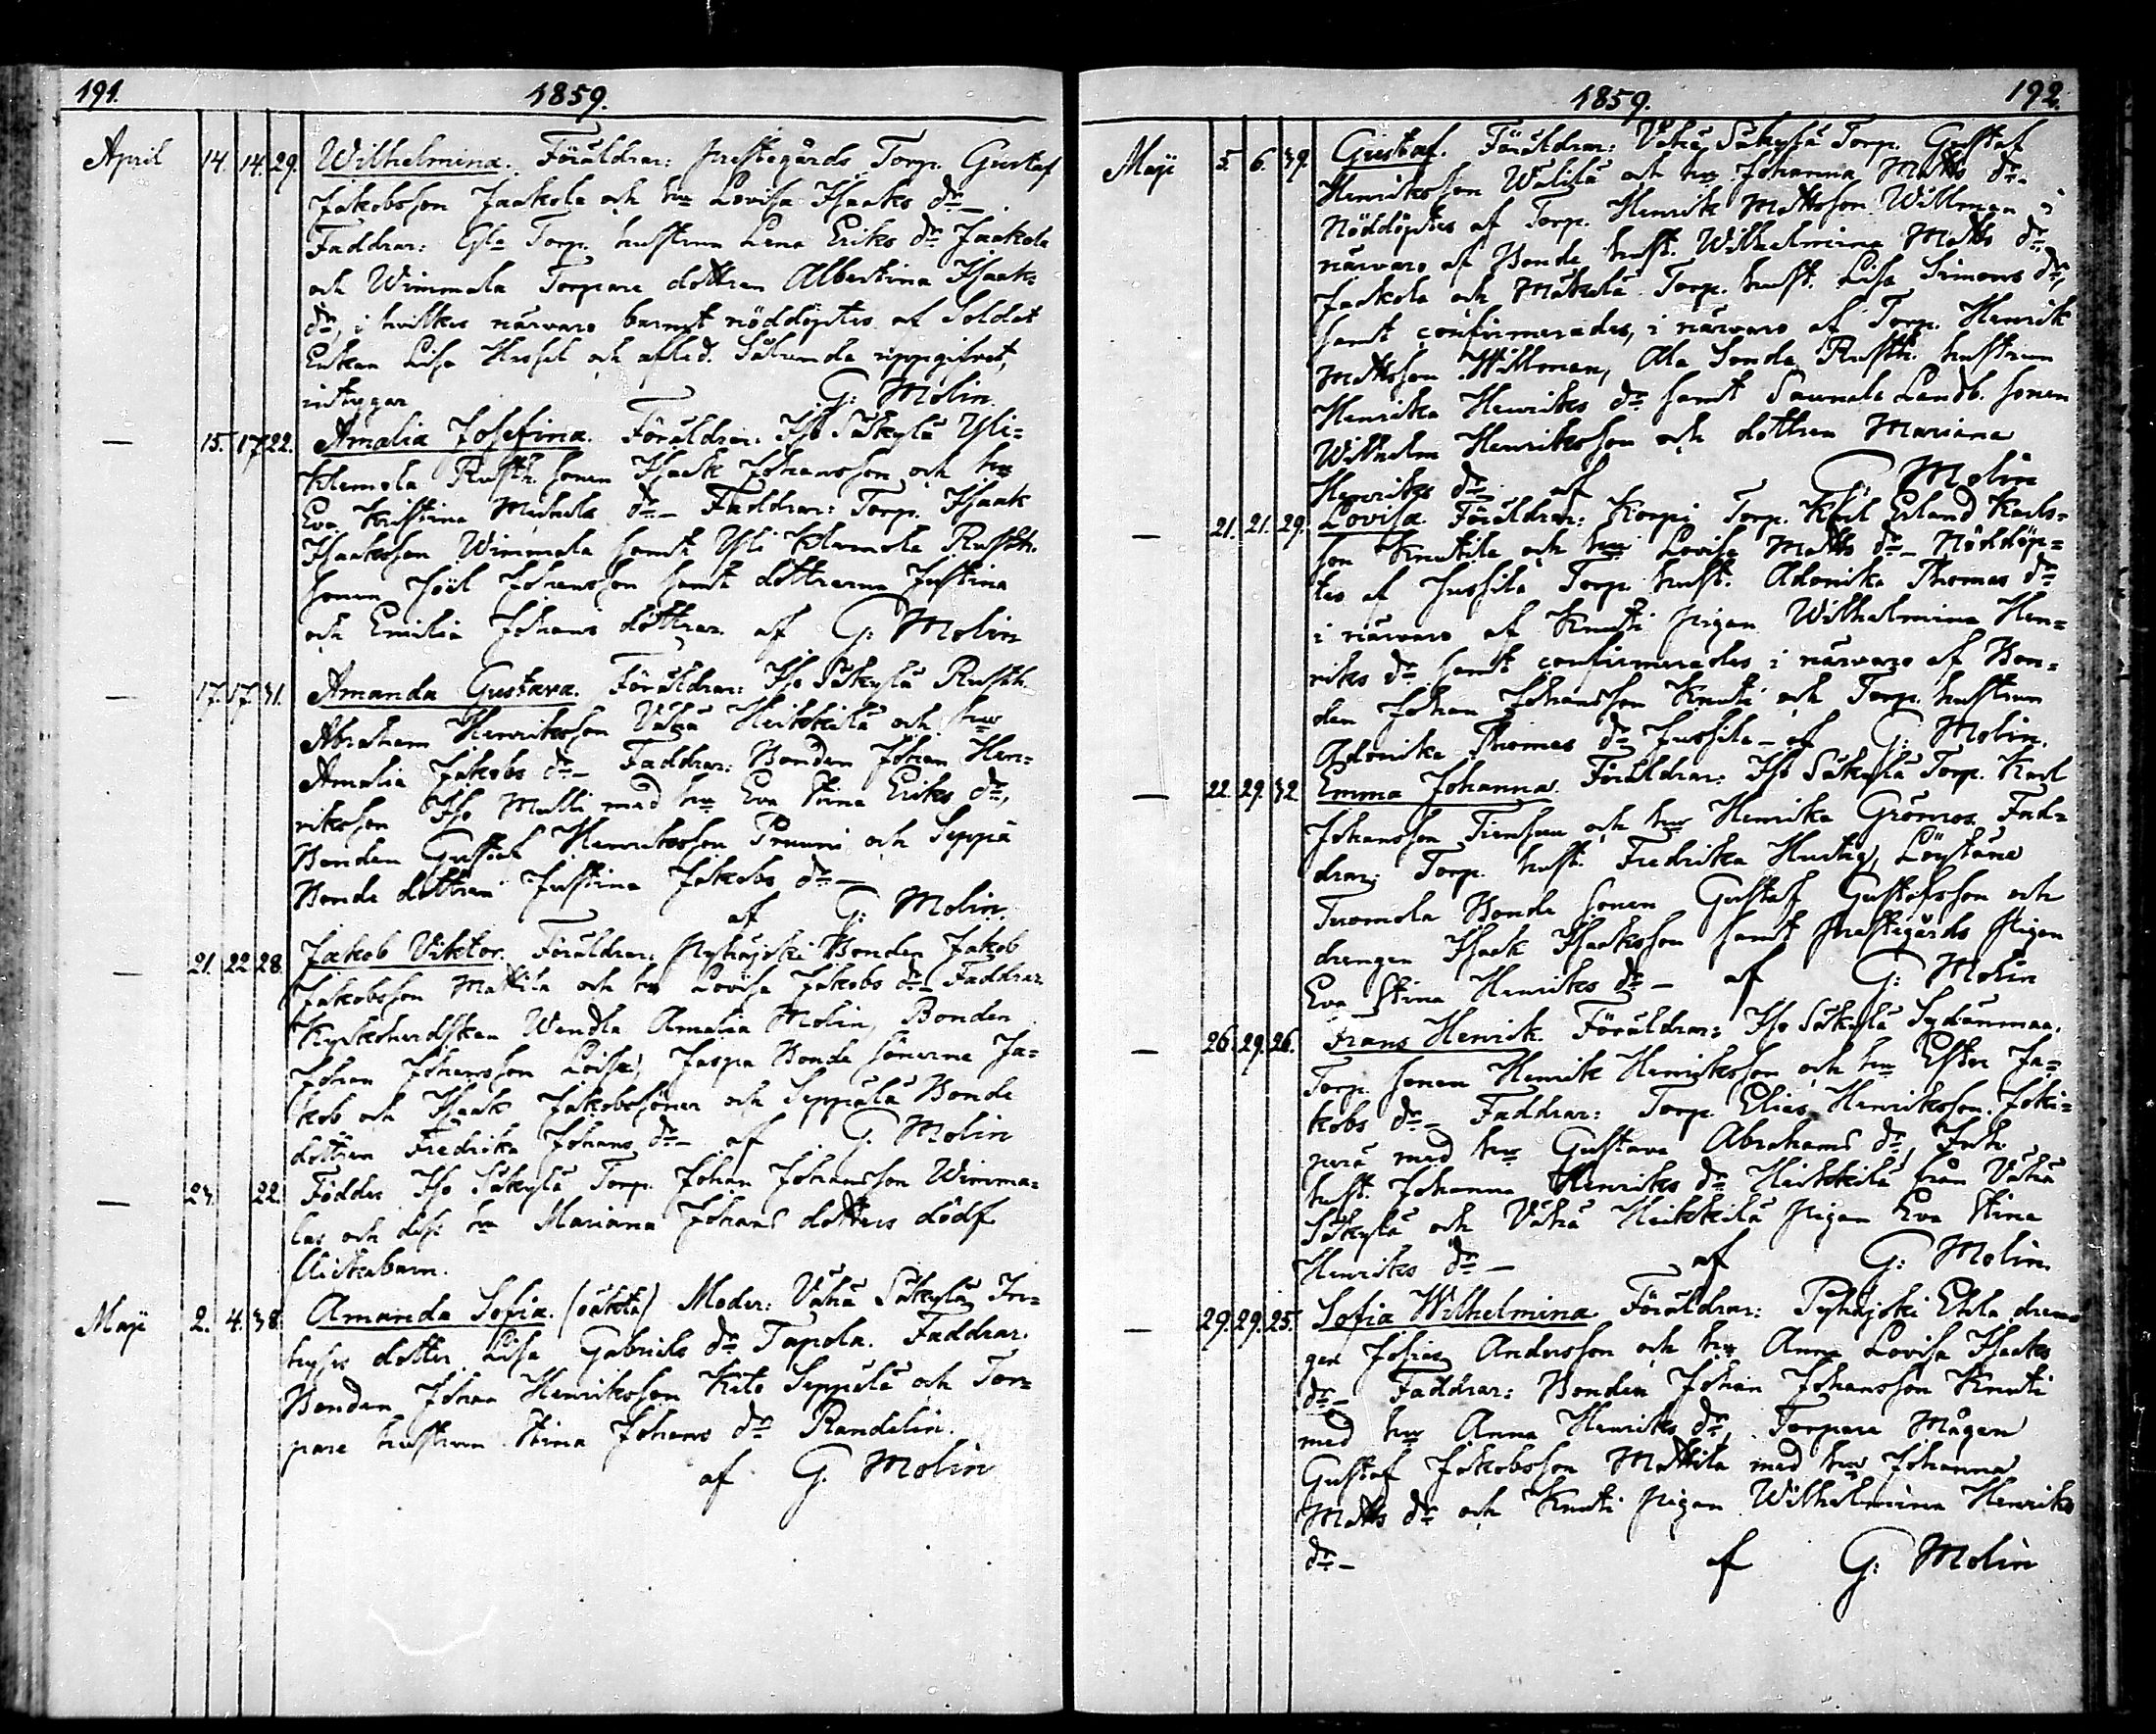 191. 1859.
April 14. 14. 29. Wilhelmina. Föräldrar: Prestegårds Torp. Gustaf
Jakobsson Jaakola och hu Lovisa Isaaks dr_.
Faddrar: Gla Torp. hustrun Lena Eriks dr Jaakola
och Wimmala Torpare dottren Albertina Isaaks
dr, i hvilkes närvaro barnet nöddöptes af Soldat
Enkan Lisa och afled. Sålunda uppgifvet,
intygar G: Molin.
— 15. 17. 22. Amalia Josefina. Föräldrar: Iso Säkylä Yli=
Klemola Rusth. sonen Isaak Johansson och hu
Eva Kristina Michels dr_ Faddrar: Torp. Isaak
Isaaksson Wimmala samt Yli Klemola Rusth.
sonen Joël Johansson samt döttrarna Justina
och Emilia Johans döttrar. af G: Molin
— 17. 17. 31. Amanda Gustava. Föräldrar: Iso Säkylä Rusth.
Abraham Henriksson Vähä Heikkilä och hu
Amalia Jakobs dr_ Faddrar: Bonden Johan Hen=
riksson Iso Mulli med hu Eva Stina Eriks dr,
Bonden Gustaf Henriksson Pruuni och Seppä
Bonde dottren Justina Jakobs dr_
af G: Molin.
— 21. 22. 28. Jakob Viktor. Föräldrar: Pyhäjoki Bonden Jakob
Jakobsson Mattila och hu Lovisa Jakobs dr_ Faddrar.
Kyrkoherdskan Wendla Amalia Molin, Bonden
Johan Johansson Loise, Jaspa Bonde sönerne Ja=
kob och Isaak Jakobssöner och Seppälä Bonde
dottren Fredrika Johans dr_ af G. Molin
— 24. 22. Föddes Iso Säkylä Torp. Johan Johansson Wimma=
las och dess hu Mariana Johans dotters dödf.
flickebarn.
Maji 2. 4. 38. Amanda Sofia. (oäkta) Moder: Vähä Säkylä In=
hyses dotter Lisa Gabriels dr Tapola. Faddrar.
Bonden Johan Henriksson Keto Seppälä och Tor=
pare hustrun Stina Johans dr Randelin.
af G. Molin
1859. 192.
Maji 5. 6. 39. Gustaf. Föräldrar: Vähä Säkylä Torp. Gustaf
Henriksson Wälilä och hu Johanna Matts dr_
Nöddöptes af Torp. Henrik Mattsson Willman i
närvaro af Bonde hust. Wilhelmina Matts dr
Jaakola och Mäkelä Torp. hust. Lisa Simons dr,
samt confirmerades, i närvaro af Torp. Henrik
Mattsson Willman, Ala Sonda Rusth. hustrun
Henrika Henriks dr samt Saunala Landb. sonen
Wilhelm Henriksson och dottren Mariana
Henriks dr af G Molin
— 21. 21. 29. Lovisa. Föräldrar: Korpi Torp. Karl Erland Karls=
son Knutila och hu Lovisa Matts dr_ Nöddöp=
tes af Jussila Torp. hust. Adonika Thomas dr
i närvaro af Knuti pigan Wilhelmina Hen=
riks dr samt confirmerades i närvaro af Bon=
den Johan Johansson Knuti och Torp. hustrun
Adonika Thomas dr Jussila_ af G: Molin.
— 22. 29. 32. Emma Johanna. Föräldrar: Iso Säkylä Torp. Karl
Johansson Tiensuu och hu Henrika Grönroos Fad=
drar: Torp. hust. Fredrika Hurtig, Löystäne
Tuomola Bonde sonen Gustaf Gustafsson och
drengen Isaak Isaaksson samt Prestegårds pigan
Eva Stina Henriks dr_ af G: Molin
— 26. 29. 26. Frans Henrik. Föräldrar: Iso Säkylä Sydänmaa.
Torp. sonen Henrik Henriksson och hu Ester Ja=
kobs dr_ Faddrar: Torp. Elias Henriksson Joki=
perä med hu Gustava Abrahams dr, Inh.
hust. Johanna Henriks dr Heikkilä från Vähä
Säkylä och Vähä Heikkilä pigan Eva Stina
Henriks dr_ af G: Molin.
— 29. 29. 25. Sofia Wilhelmina. Föräldrar: Pyhäjoki Ehla dren=
gen Josias Andersson och hu Anna Lovisa Isaaks
dr_ Faddrar: Bonden Johan Johansson Knuti
med hu Anna Henriks dr, Torpare Mågen
Gustaf Jakobsson Mattila med hu Johanna
Matts dr och Knuti pigan Wilhelmina Henriks
dr_ af G: Molin